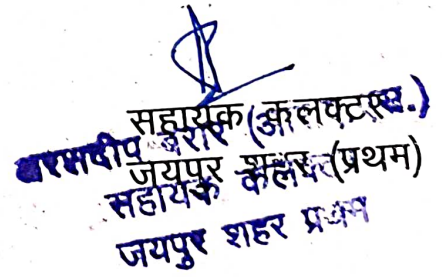 सहायक कलक्टर
बराड़ (आ
जयपुर शहर (प्रथम)
सहायक कलक्टर
जयपुर शहर प्रथम